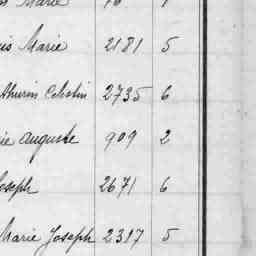 Marie
uis Marie 2181 5
thurin Célestin 2735 6
rie auguste 909 2
Joseph 2671 6
Marie Joseph 2317 5